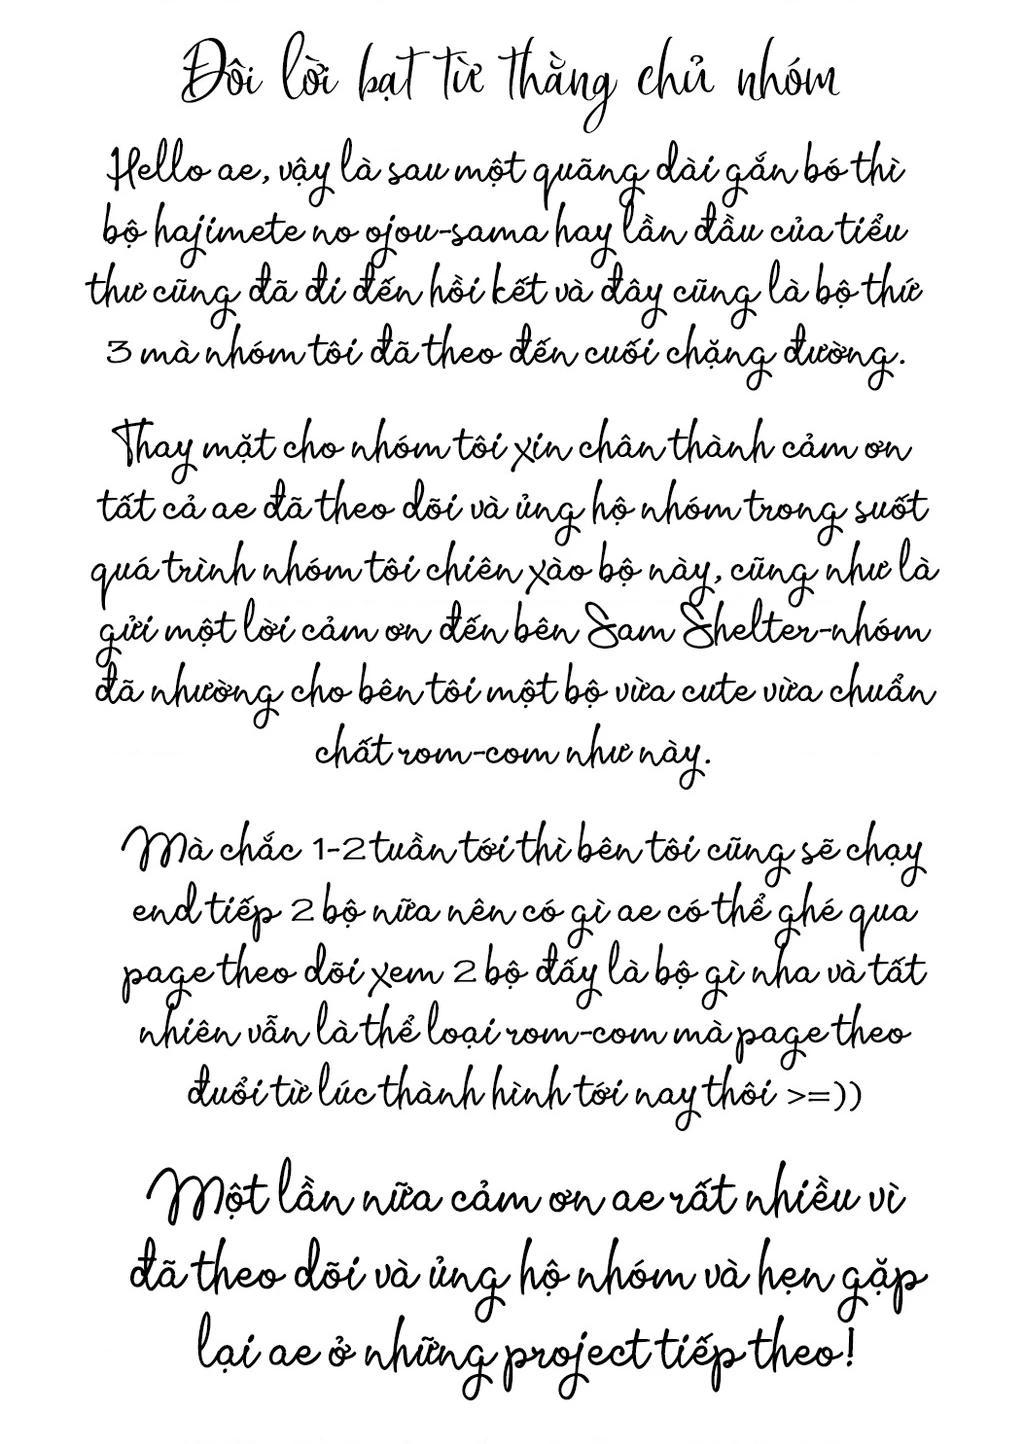 Đôi lời bạt từ thằng chủ nhóm
Hello ae, vậy là sau một quãng dài gắn bó thì
bộ hajimete no ojou-sama hay lần đầu của tiểu
thư cũng đã đi đến hồi kết và đây cũng là bộ thứ
3 mà nhóm tôi đã theo đến cuối chặng đường.
Thay mặt cho nhóm tôi xin chân thành cảm ơn
tất cả ae đã theo dõi và ủng hộ nhóm trong suốt
quá trình nhóm tôi chiên xào bộ này, cũng như là
gửi một lời cảm ơn đến bên Sam Shelter-nhóm
đã nhường cho bên tôi một bộ vừa cute vừa chuẩn
chất rom-com như này.
Mà chắc 1-2 tuần tới thì bên tôi cũng sẽ chạy
end tiếp 2 bộ nữa nên có gì ae có thể ghé qua
page theo dõi xem 2 bộ đấy là bộ gì nha và tất
nhiên vẫn là thể loại rom-com mà page theo
đuổi từ lúc thành hình tới nay thôi >=))
Một lần nữa cảm ơn ae rất nhiều vì
đã theo dõi và ủng hộ nhóm và hẹn gặp
lại ae ở những project tiếp theo!